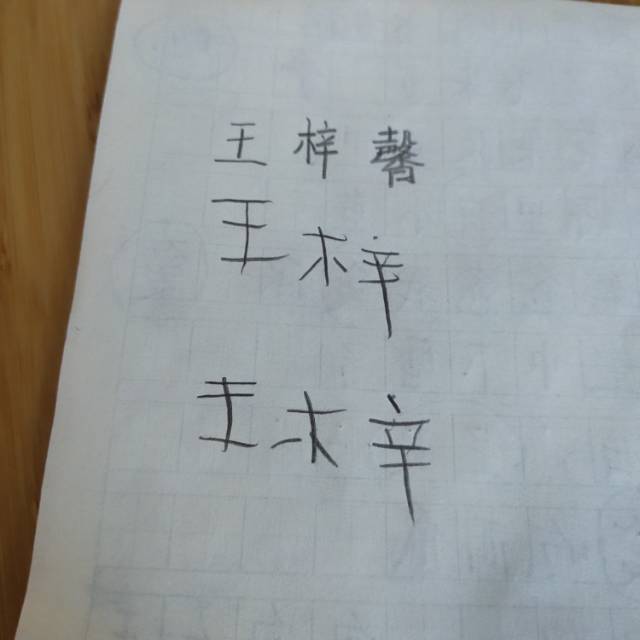 王梓馨
王梓
王梓